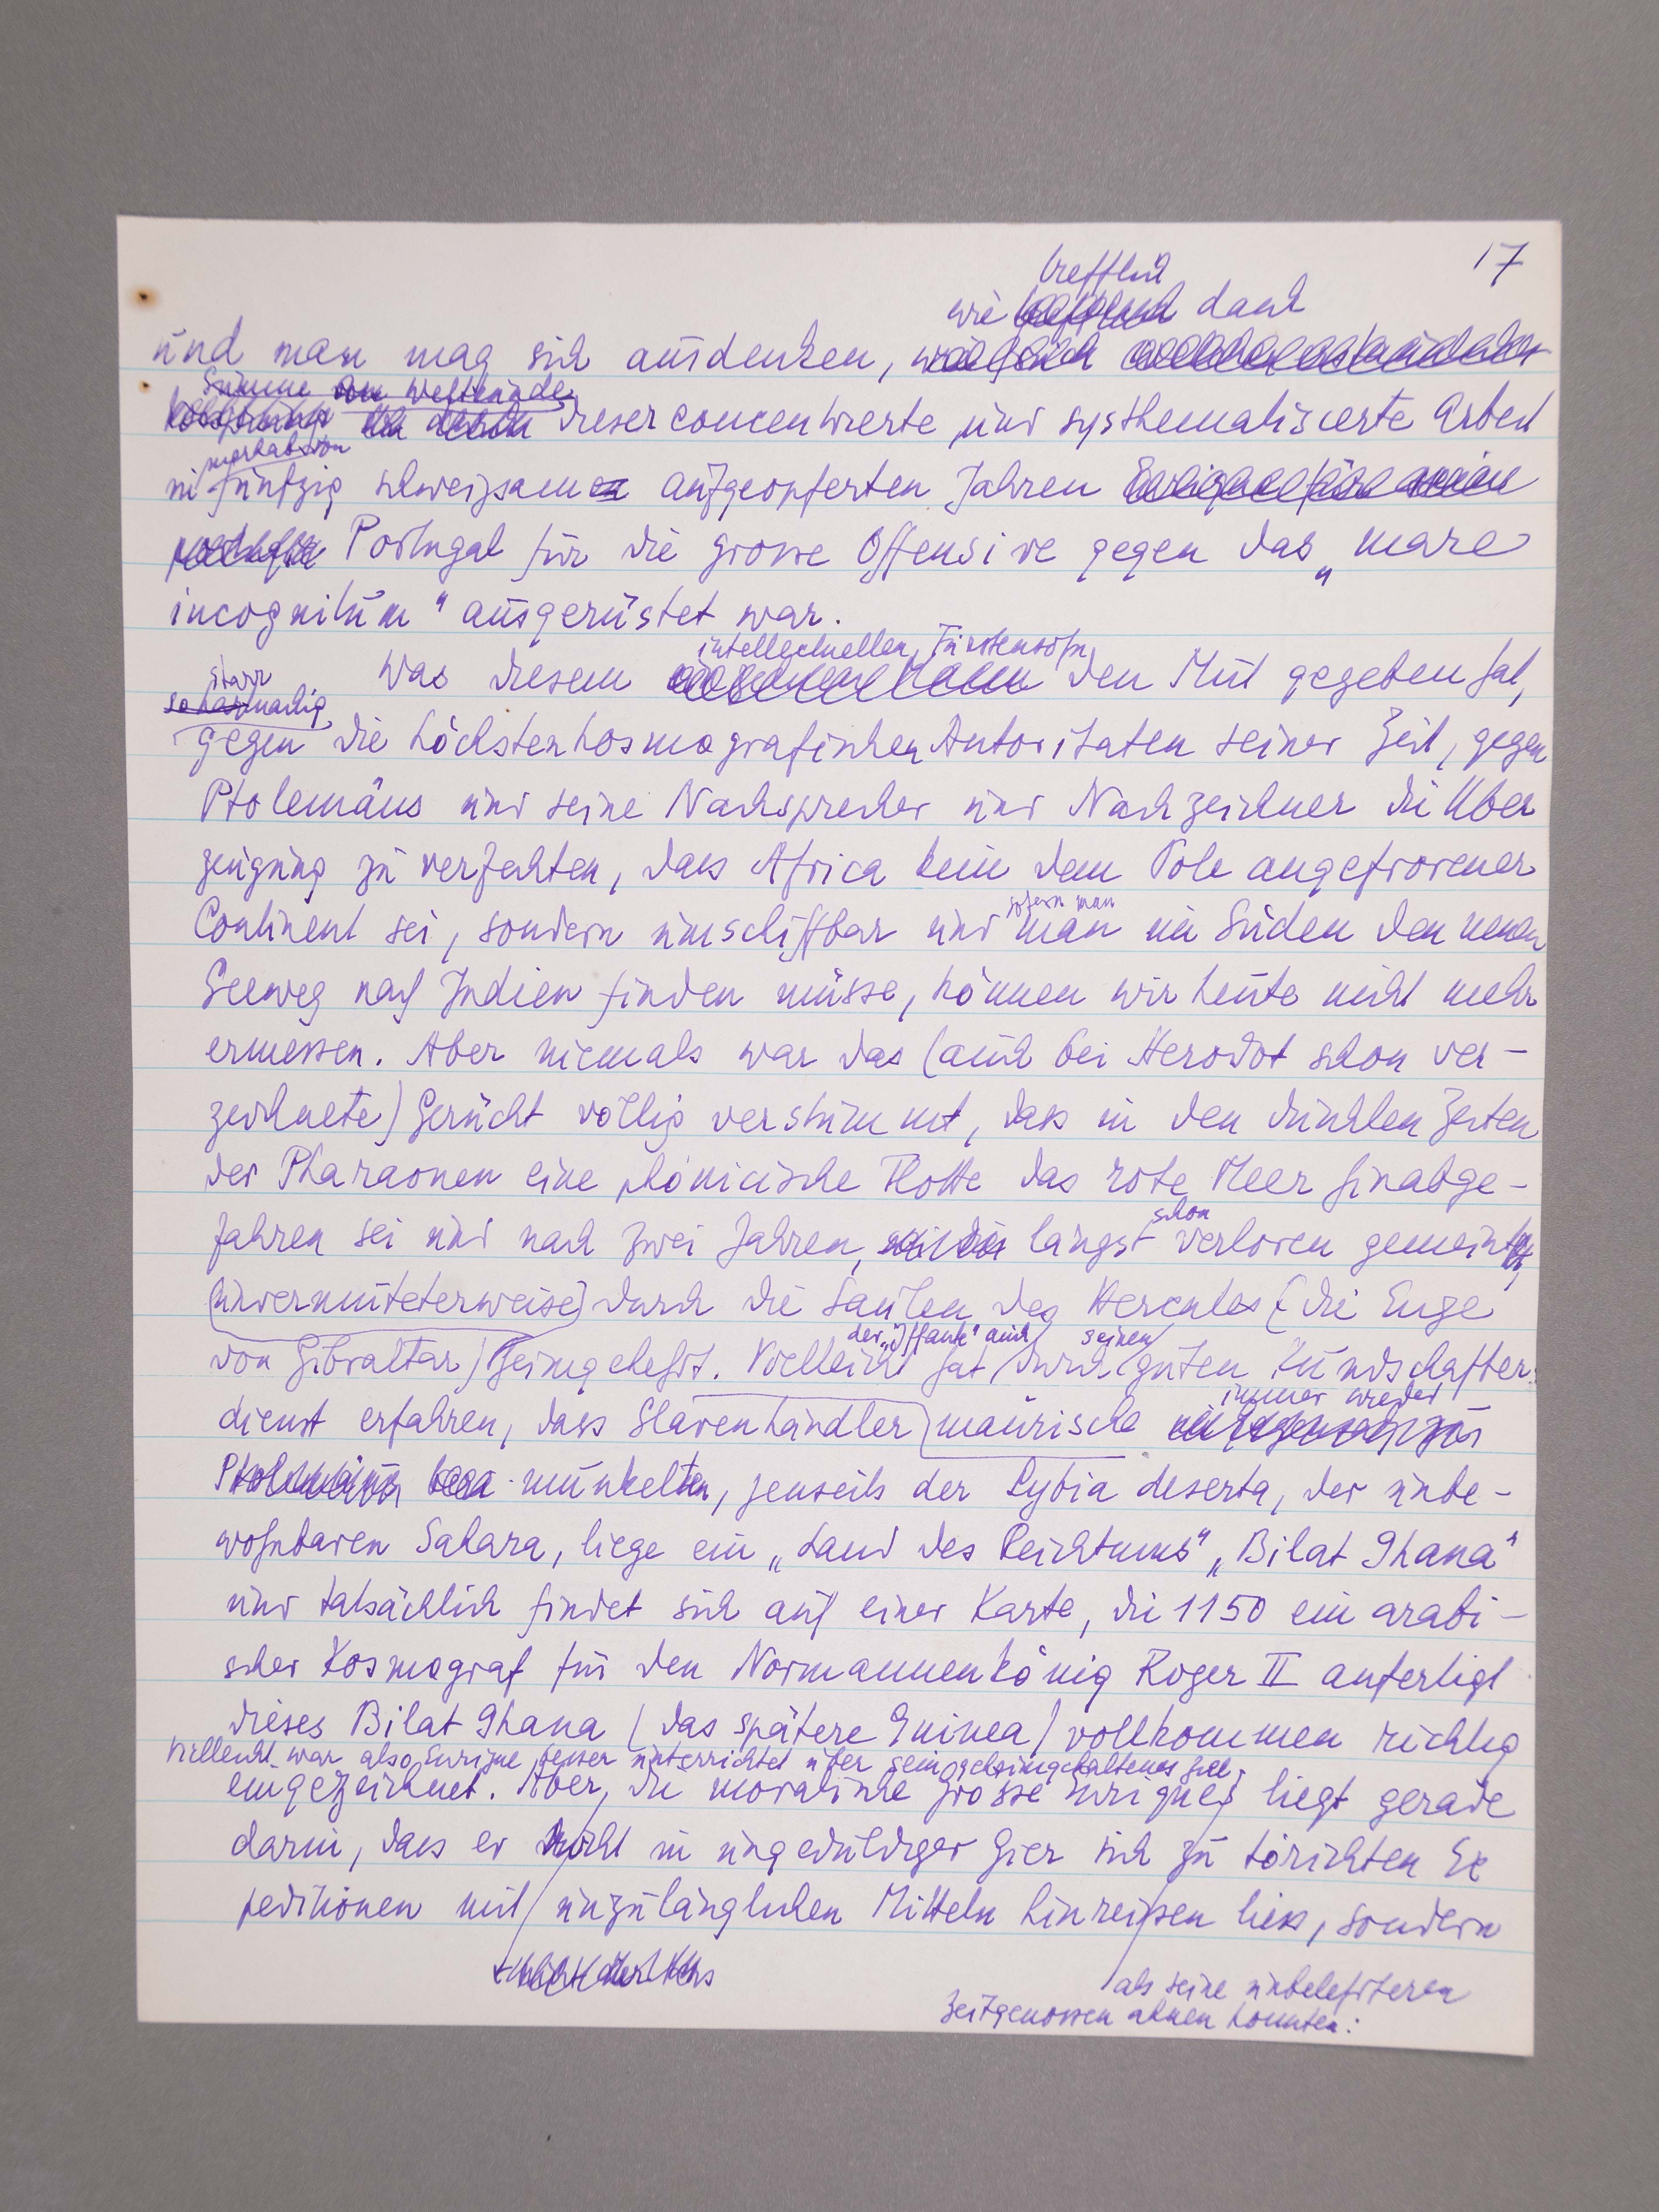 17
trefflich
wie dank
und man mag sich ausdenken,
Summe von Weltkunde
dieser concentrierte und systhematiscierte Arbeit
in fünfzig schweigsam aufgeopferten Jahren
Portugal für die grosse Offensive gegen das „mare
incognitum" ausgerüstet war.
intellectuellen Fürstensohn
Was diesem den Mut gegeben hat,
starr
gegen die höchsten kosmografischen Autoritaten seiner Zeit, gegen
Ptolemäus und seine Nachsprecher und Nachzeichner die Uber
zeugung zu verfechten, dass Africa kein dem Pole angefrorener
sofern man
Continent sei, sondern umschiffbar und man im Süden den neuen
Seeweg nach Indien finden müsse, können wir heute nicht mehr
ermessen. Aber niemals war das (auch bei Herodot schon ver-
zeichnete) Gerücht vollig verstummt, dass in den dunklen Zeiten
der Pharaonen eine phönicische Flotte das rote Meer hinabge-
schon
fahren sei und nach zwei Jahren, längst verloren gemeint,
(unvermuteterweise) durch die Säulen des Hercules (die Enge
der „Iffante" auch seinen
von Gibraltar) heimgekehrt. Vielleicht hat durch guten Kundschafter
immer wieder
dienst erfahren, dass Slavenhändler maurische
munkelten, jenseits der Lybia deserta, der unbe-
wohnbaren Sahara, liege ein „Land des Reichtums" „Bilat Ghana"
und tatsächlich findet sich auf einer Karte, die 1150 ein arabi-
scher Kosmograf für den Normannenkönig Roger II anfertigt
dieses Bilat Ghana (das spätere Guinea) vollkommen richtig
Vielleicht war also Enrique besser unterrichtet über sein geheimgehaltenes Ziel
eingezeichnet. Aber, die moralische Grösse Enriques liegt gerade
darin, dass er nicht in ungeduldiger Gier sich zu törichten Ex
peditionen mit unzulänglichen Mitteln hinreissen liess, sondern
als seine unbelehrteren
Zeitgenossen ahnen konnten: